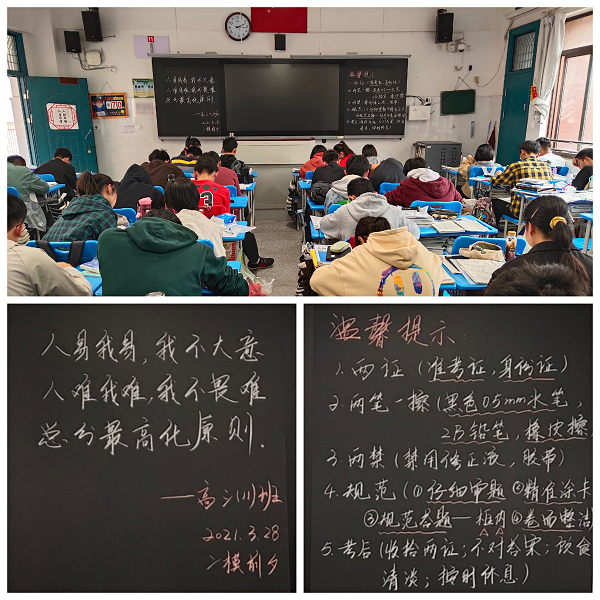 人易我易，我不大意
人难我难，我不畏难
总分最高化原则.
——高三(11)班
2021.3.28
二模前夕
温馨提示：
1.两证（准考证，身份证）
2.两笔一擦（黑色0.5mm水笔，
2B铅笔，橡皮擦
3.两禁（禁用修正液，胶带）
4.规范（①仔细审题 ②精准涂卡
③规范答题——框内 ④卷面整洁
5.考后（收拾两证；不对答案；饮食
清淡；按时休息）